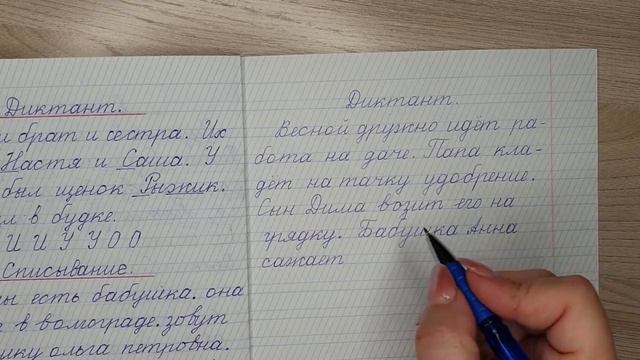 Диктант.
и брат и сестра. Их
Настя и Саша. У
был щенок Рыжик.
л в будке.
И И У У О О
Списывание.
ы есть бабушка. она
е в волгограде. зовут
шку ольга петровна.
Диктант.
Весной дружно идёт ра-
бота на даче. Папа кла-
дёт на тачку удобрение.
Сын Дима возит его на
грядку. Бабушка Анна
сажает